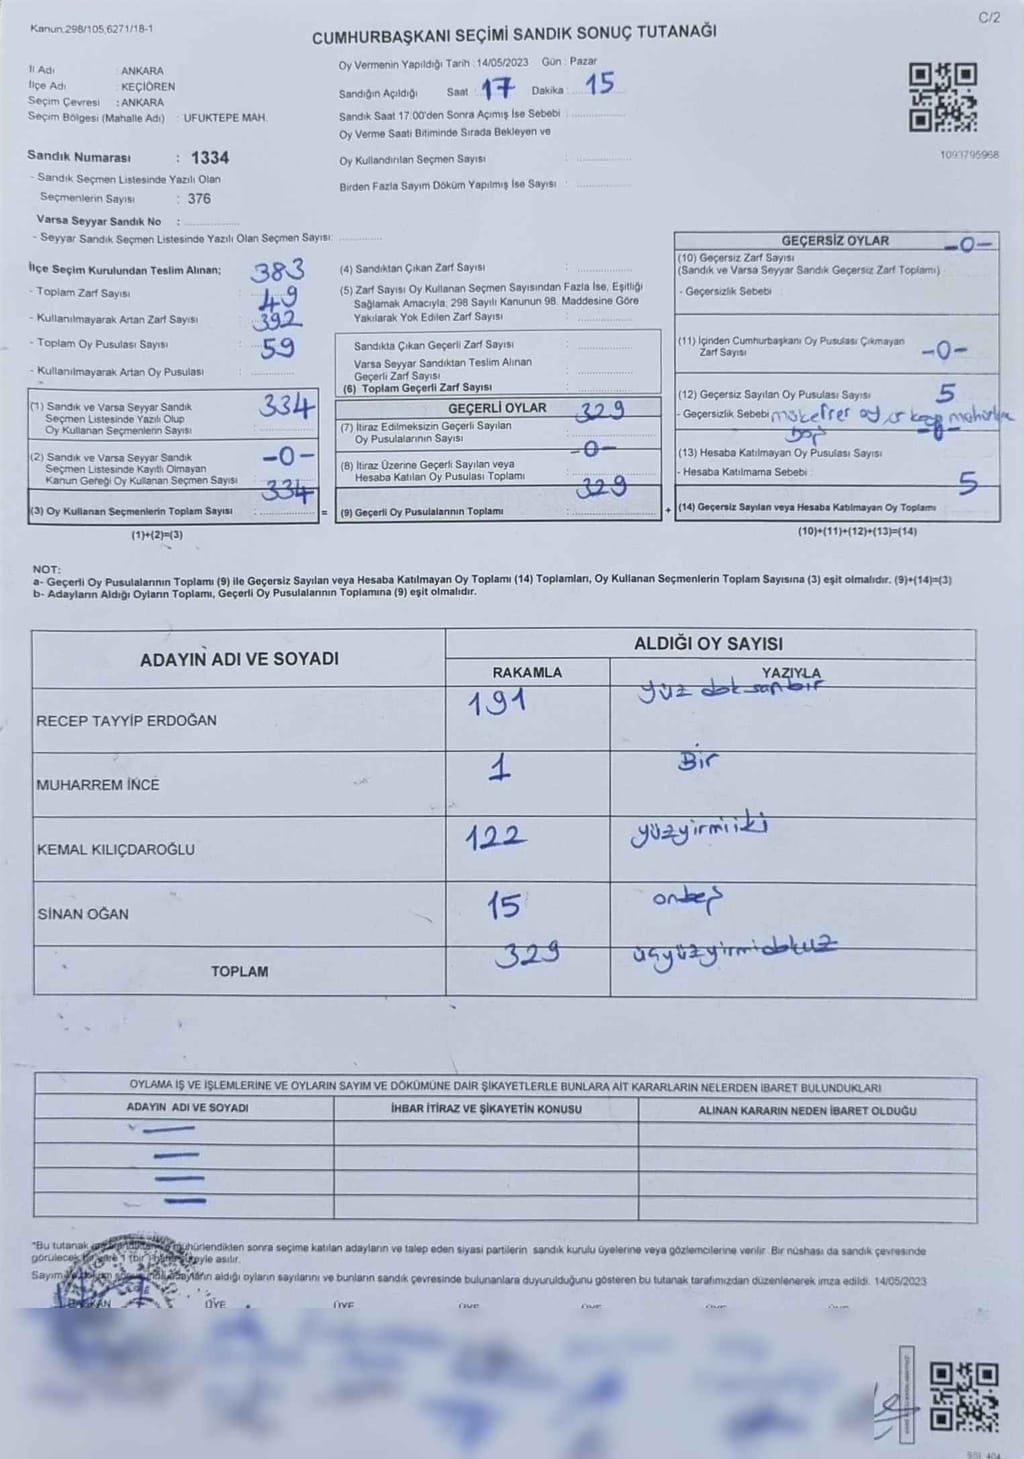 Kanun.298/105,6271/18-1
C/2
CUMHURBAŞKANI SEÇİMİ SANDIK SONUÇ TUTANAĞI
İl Adı : ANKARA
İlçe Adı : KEÇİÖREN
Seçim Çevresi : ANKARA
Seçim Bölgesi (Mahalle Adı) : UFUKTEPE MAH.
Oy Vermenin Yapıldığı Tarih : 14/05/2023 Gün : Pazar
Sandığın Açıldığı Saat : 17 Dakika : 15
Sandık Saat 17:00'den Sonra Açımış İse Sebebi :
Oy Verme Saati Bitiminde Sırada Bekleyen ve
Oy Kullandırılan Seçmen Sayısı :
Birden Fazla Sayım Döküm Yapılmış İse Sayısı :
1093795968
Sandık Numarası : 1334
- Sandık Seçmen Listesinde Yazılı Olan
Seçmenlerin Sayısı : 376
Varsa Seyyar Sandık No :
- Seyyar Sandık Seçmen Listesinde Yazılı Olan Seçmen Sayısı:
İlçe Seçim Kurulundan Teslim Alınan;
383
- Toplam Zarf Sayısı :
49
- Kullanılmayarak Artan Zarf Sayısı :
392
- Toplam Oy Pusulası Sayısı :
59
- Kullanılmayarak Artan Oy Pusulası :
(1) Sandık ve Varsa Seyyar Sandık
Seçmen Listesinde Yazılı Olup
Oy Kullanan Seçmenlerin Sayısı :
334
(2) Sandık ve Varsa Seyyar Sandık
Seçmen Listesinde Kayıtlı Olmayan
Kanun Gereği Oy Kullanan Seçmen Sayısı :
-0-
334
(3) Oy Kullanan Seçmenlerin Toplam Sayısı :
=
(1)+(2)=(3)
(4) Sandıktan Çıkan Zarf Sayısı :
(5) Zarf Sayısı Oy Kullanan Seçmen Sayısından Fazla İse, Eşitliği
Sağlamak Amacıyla; 298 Sayılı Kanunun 98. Maddesine Göre
Yakılarak Yok Edilen Zarf Sayısı :
Sandıkta Çıkan Geçerli Zarf Sayısı :
Varsa Seyyar Sandıktan Teslim Alınan
Geçerli Zarf Sayısı :
(6) Toplam Geçerli Zarf Sayısı :
GEÇERLİ OYLAR
329
(7) İtiraz Edilmeksizin Geçerli Sayılan
Oy Pusulalarının Sayısı :
-0-
(8) İtiraz Üzerine Geçerli Sayılan veya
Hesaba Katılan Oy Pusulası Toplamı :
329
(9) Geçerli Oy Pusulalarının Toplamı :
+
GEÇERSİZ OYLAR
-0-
(10) Geçersiz Zarf Sayısı
(Sandık ve Varsa Seyyar Sandık Geçersiz Zarf Toplamı) :
- Geçersizlik Sebebi :
(11) İçinden Cumhurbaşkanı Oy Pusulası Çıkmayan
Zarf Sayısı :
-0-
(12) Geçersiz Sayılan Oy Pusulası Sayısı :
5
- Geçersizlik Sebebi : oy
boş
-0-
(13) Hesaba Katılmayan Oy Pusulası Sayısı :
- Hesaba Katılmama Sebebi :
5
(14) Geçersiz Sayılan veya Hesaba Katılmayan Oy Toplamı :
(10)+(11)+(12)+(13)=(14)
NOT:
a- Geçerli Oy Pusulalarının Toplamı (9) ile Geçersiz Sayılan veya Hesaba Katılmayan Oy Toplamı (14) Toplamları, Oy Kullanan Seçmenlerin Toplam Sayısına (3) eşit olmalıdır. (9)+(14)=(3)
b- Adayların Aldığı Oyların Toplamı, Geçerli Oy Pusulalarının Toplamına (9) eşit olmalıdır.
ADAYIN ADI VE SOYADI
ALDIĞI OY SAYISI
RAKAMLA YAZIYLA
RECEP TAYYİP ERDOĞAN 191 yüz doksanbir
MUHARREM İNCE 1 Bir
KEMAL KILIÇDAROĞLU 122 yüzyirmiiki
SİNAN OĞAN 15 onbeş
TOPLAM 329 üçyüzyirmidokuz
OYLAMA İŞ VE İŞLEMLERİNE VE OYLARIN SAYIM VE DÖKÜMÜNE DAİR ŞİKAYETLERLE BUNLARA AİT KARARLARIN NELERDEN İBARET BULUNDUKLARI
ADAYIN ADI VE SOYADI İHBAR İTİRAZ VE ŞİKAYETİN KONUSU ALINAN KARARIN NEDEN İBARET OLDUĞU
*Bu tutanak mühürlendikten sonra seçime katılan adayların ve talep eden siyasi partilerin sandık kurulu üyelerine veya gözlemcilerine verilir. Bir nüshası da sandık çevresinde
görülecek bir yere 1 (bir) süreyle asılır.
Sayım adayların aldığı oyların sayılarını ve bunların sandık çevresinde bulunanlara duyurulduğunu gösteren bu tutanak tarafımızdan düzenlenerek imza edildi. 14/05/2023
BAŞKAN ÜYE ÜYE ÜYE ÜYE ÜYE ÜYE